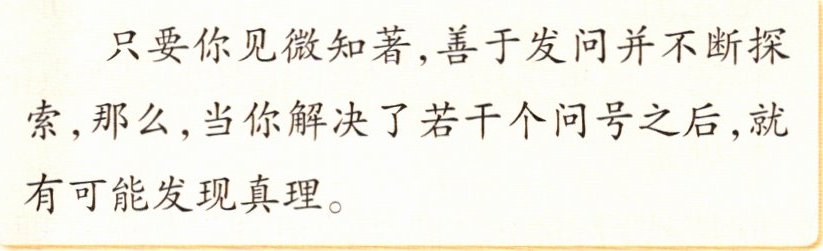 只要你见微知著,善于发问并不断探
索,那么,当你解决了若干个问号之后,就
有可能发现真理。